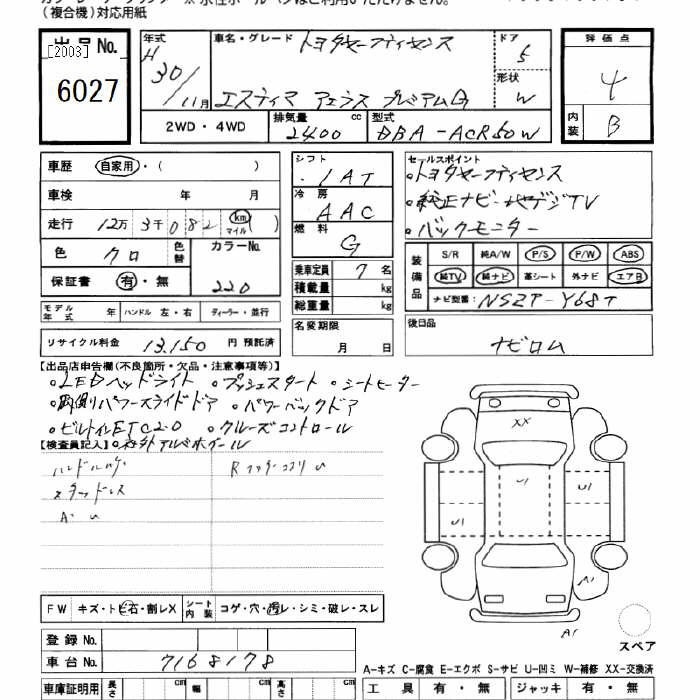 (複合機)対応用紙
出品 No.
[2003]
6027
年式
H
30/11月
車名・グレード
トヨタセーフティセンス
エスティマ アエラス プレミアムG
ドア
5
形状
W
評価点
4
内装
B
2WD・4WD
排気量
2400
cc
型式
DBA-ACR50W
車歴
自家用・( )
車検
年 月
走行
12万3千082
km
マイル
( )
色
クロ
色替
カラーNo.
220
保証書
有・無
モデル年式
年
ハンドル
左・右
ディーラー・並行
リサイクル料金
13,150
円 預託済
シフト
IAT
冷房
AAC
燃料
G
乗車定員
7名
積載量
kg
総重量
kg
名変期限
月 日
セールスポイント
・トヨタセーフティセンス
・純正ナビ・地デジTV
・バックモニター
装備品
S/R 純A/W P/S P/W ABS
純TV 純ナビ 革シート 外ナビ エアB
ナビ型番:
NSZT-Y68T
後日品
ナビロム
【出品店申告欄(不良箇所・欠品・注意事項等)】
・LEDヘッドライト ・プッシュスタート ・シートヒーター
・両側パワースライドドア ・パワーバックドア
・ビルトインETC2.0 ・クルーズコントロール
【検査員記入】
・社外アルミホイール
スタッドレス
A・U
XX
U1
U1
U1
A1
A1
スペア
FW
キズ・トビ石・割レX
シート内装
コゲ・穴・汚レ・シミ・破レ・スレ
登録 No.
車台 No.
7168178
A-キズ C-腐食 E-エクボ S-サビ U-凹ミ W-補修 XX-交換済
車庫証明用
長さ
cm
幅
cm
高さ
cm
工具
有・無
ジャッキ
有・無